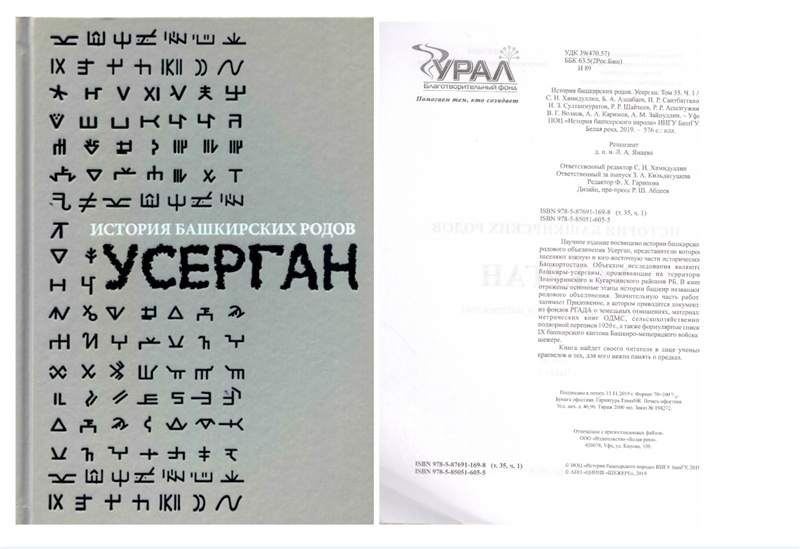 ИСТОРИЯ БАШКИРСКИХ РОДОВ
УСЕРГАН
УРАЛ
Благотворительный фонд
Помогаем тем, кто созидает
УДК 39(470.57)
ББК 63.5(2Рос.Баш)
И 89
История башкирских родов. Усерган. Том 35. Ч. 1 /
С. Н. Хамидуллин, Б. А. Азнабаев, И. Р. Саитбаттало
И. З. Султанмуратов, Р. Р. Шайхеев, Р. Р. Асылгужин
В. Г. Волков, А. А. Каримов, А. М. Зайнуллин. – Уфа
ПОЦ «История башкирского народа» ИИГУ БашГУ
Белая река, 2019. – 576 с.: илл.
Рецензент
д. и. н. Л. А. Ямаева
Ответственный редактор С. Н. Хамидуллин
Ответственный за выпуск З. А. Кильдигушева
Редактор Ф. Х. Гарипова
Дизайн, пре-пресс Р. Ш. Абдеев
ISBN 978-5-87691-169-8 (т. 35, ч. 1)
ISBN 978-5-85051-605-5
Научное издание посвящено истории башкирско
родового объединения Усерган, представители которог
населяют южную и юго-восточную части историческо
Башкортостана. Объектом исследования являютс
башкиры-усерганы, проживающие на территори
Зианчуринского и Кугарчинского районов РБ. В книг
отражены основные этапы истории башкир названног
родового объединения. Значительную часть работ
занимает Приложение, в котором приводятся документ
из фондов РГАДА о земельных отношениях, материал
метрических книг ОДМС, сельскохозяйственно
подворной переписи 1920 г., а также формулярные списки
IX башкирского кантона Башкиро-мещеряцкого войска
шежере.
Книга найдет своего читателя в лице ученых
краеведов и тех, для кого важна память о предках.
Подписано в печать 13.11.2019 г. Формат 70×100
Бумага офсетная. Гарнитура TimesNR. Печать офсетная.
Усл. печ. л. 46,96. Тираж 2000 экз. Заказ № 194272.
Отпечатано с предоставленных файлов.
ООО «Издательство «Белая река».
450078, Уфа, ул. Кирова, 109.
ISBN 978-5-87691-169-8 (т. 35, ч. 1)
ISBN 978-5-85051-605-5
© ПОЦ «История башкирского народа» ИИГУ БашГУ, 2019
© АНО «ЦИИНБ «ШЕЖЕРЕ», 2019